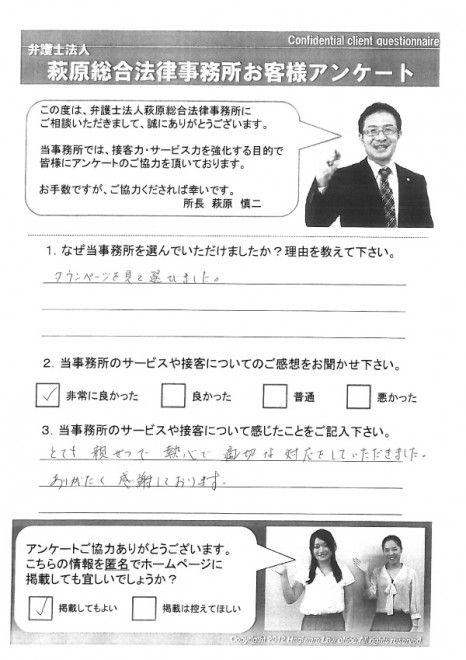 Confidential client questionnaire
弁護士法人
萩原総合法律事務所お客様アンケート
この度は、弁護士法人萩原総合法律事務所に
ご相談いただきまして、誠にありがとうございます。
当事務所では、接客力・サービス力を強化する目的で
皆様にアンケートのご協力を頂いております。
お手数ですが、ご協力くだされば幸いです。
所長 萩原 慎二
1. なぜ当事務所を選んでいただけましたか？理由を教えて下さい。
タウンページを見て選びました。
2. 当事務所のサービスや接客についてのご感想をお聞かせ下さい。
非常に良かった 良かった 普通 悪かった
3. 当事務所のサービスや接客について感じたことをご記入下さい。
とても親せつで熱心で適切な対応をしていただきました。
ありがたく感謝しております。
アンケートご協力ありがとうございます。
こちらの情報を匿名でホームページに
掲載しても宜しいでしょうか？
掲載してもよい 掲載は控えてほしい
Copyright 2012 Hagiwara Law office. All rights reserved.